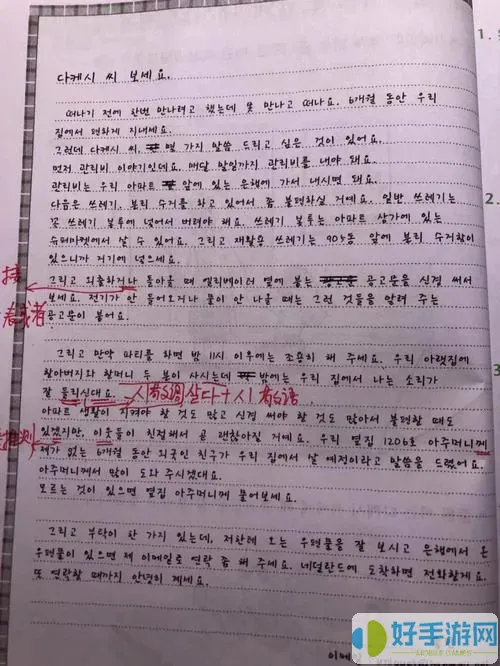 다케시 씨 보세요.
떠나기 전에 한번 만나려고 했는데 못 만나고 떠나요. 6개월 동안 우리
집에서 편하게 지내세요.
그런데 다케시 씨, 몇 가지 말씀 드리고 싶은 것이 있어요.
먼저 관리비 이야기인데요. 매달 말일까지 관리비를 내야 돼요.
관리비는 우리 아파트 앞에 있는 은행에 가서 내시면 돼요.
다음은 쓰레기. 분리 수거를 하고 있어서 좀 불편하실 거예요. 일반 쓰레기는
꼭 쓰레기 봉투에 넣어서 버려야 해요. 쓰레기 봉투는 아파트 상가에 있는
슈퍼마켓에서 살 수 있어요. 그리고 재활용 쓰레기는 905동 앞에 분리 수거함이
있으니까 거기에 넣으세요.
그리고 외출하거나 돌아올 때 엘리베이터 옆에 붙는 공고문을 신경 써서
보세요. 전기가 안 들어오거나 물이 안 나올 때는 그런 것들을 알려 주는
공고문이 붙어요.
或者
그리고 만약 파티를 하면 밤 11시 이후에는 조용히 해 주세요. 우리 아랫집에
할아버지와 할머니 두 분이 사시는데 밤에는 우리 집에서 나는 소리가
잘 들리신대요.
아파트 생활이 지켜야 할 것도 많고 신경 써야 할 것도 많아서 불편할 때도
있겠지만, 이웃들이 친절해서 곧 괜찮아질 거예요. 우리 옆집 1206호 아주머니께
推测
제가 없는 6개월 동안 외국인 친구가 우리 집에서 살 예정이라고 말씀을 드렸어요.
아주머니께서 많이 도와 주시겠대요.
모르는 것이 있으면 옆집 아주머니께 물어보세요.
그리고 부탁이 한 가지 있는데, 저한테 오는 우편물을 잘 보시고 은행에서 온
우편물이 있으면 제 이메일로 연락 좀 해 주세요. 네덜란드에 도착하면 전화할게요.
또 연락할 때까지 안녕히 계세요.
이메일
好手游网
MOBILE GAMES
1.
2.
3